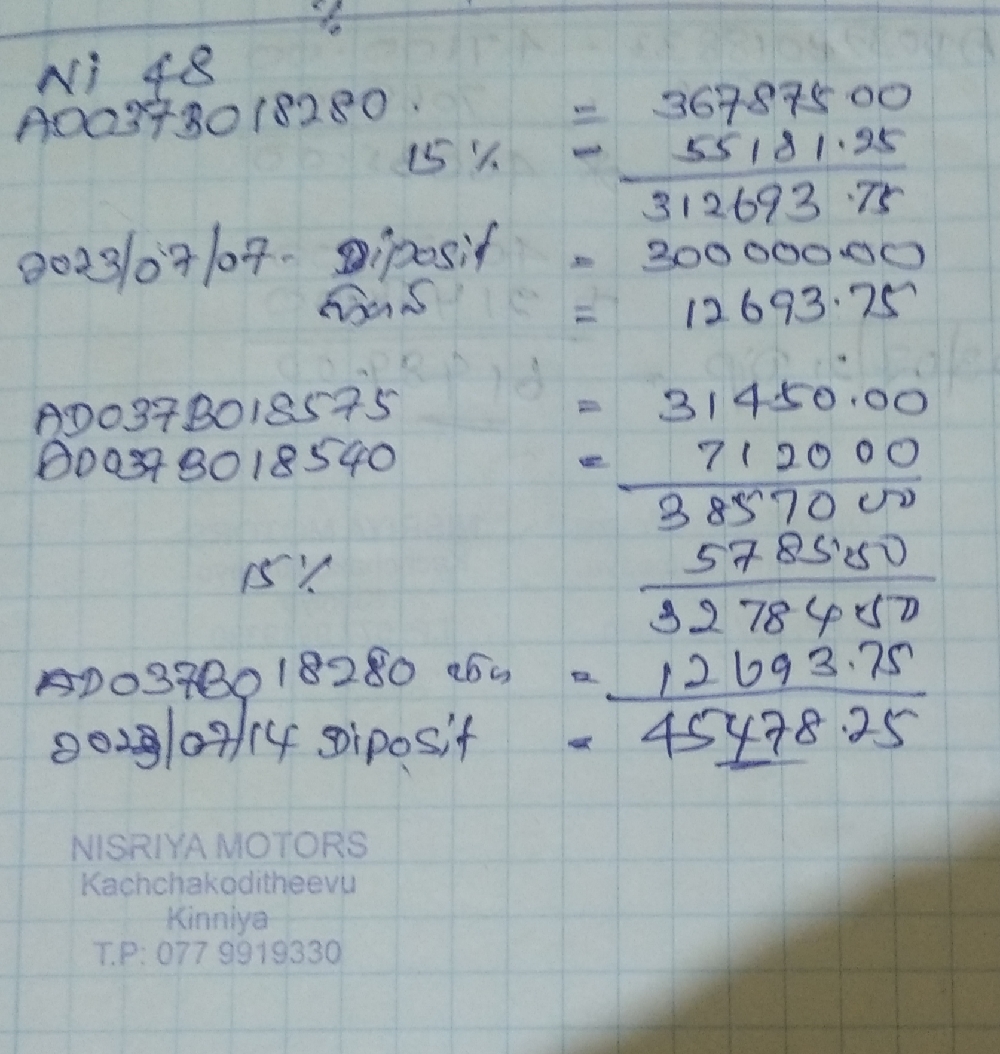 %
Ni 48
AD037B018280 . = 367875.00
15 % - 55181.25
312693.75
2023/07/07 - Diposit = 300000.00
= 12693.75
AD037B018575 = 31450.00
AD037B018540 = 7120 00
38570 00
15% 5785.50
32784 50
AD037B018280 = 12693.75
2023/07/14 Diposit = 45478.25
NISRIYA MOTORS
Kachchakoditheevu
Kinniya
T.P: 077 9919330